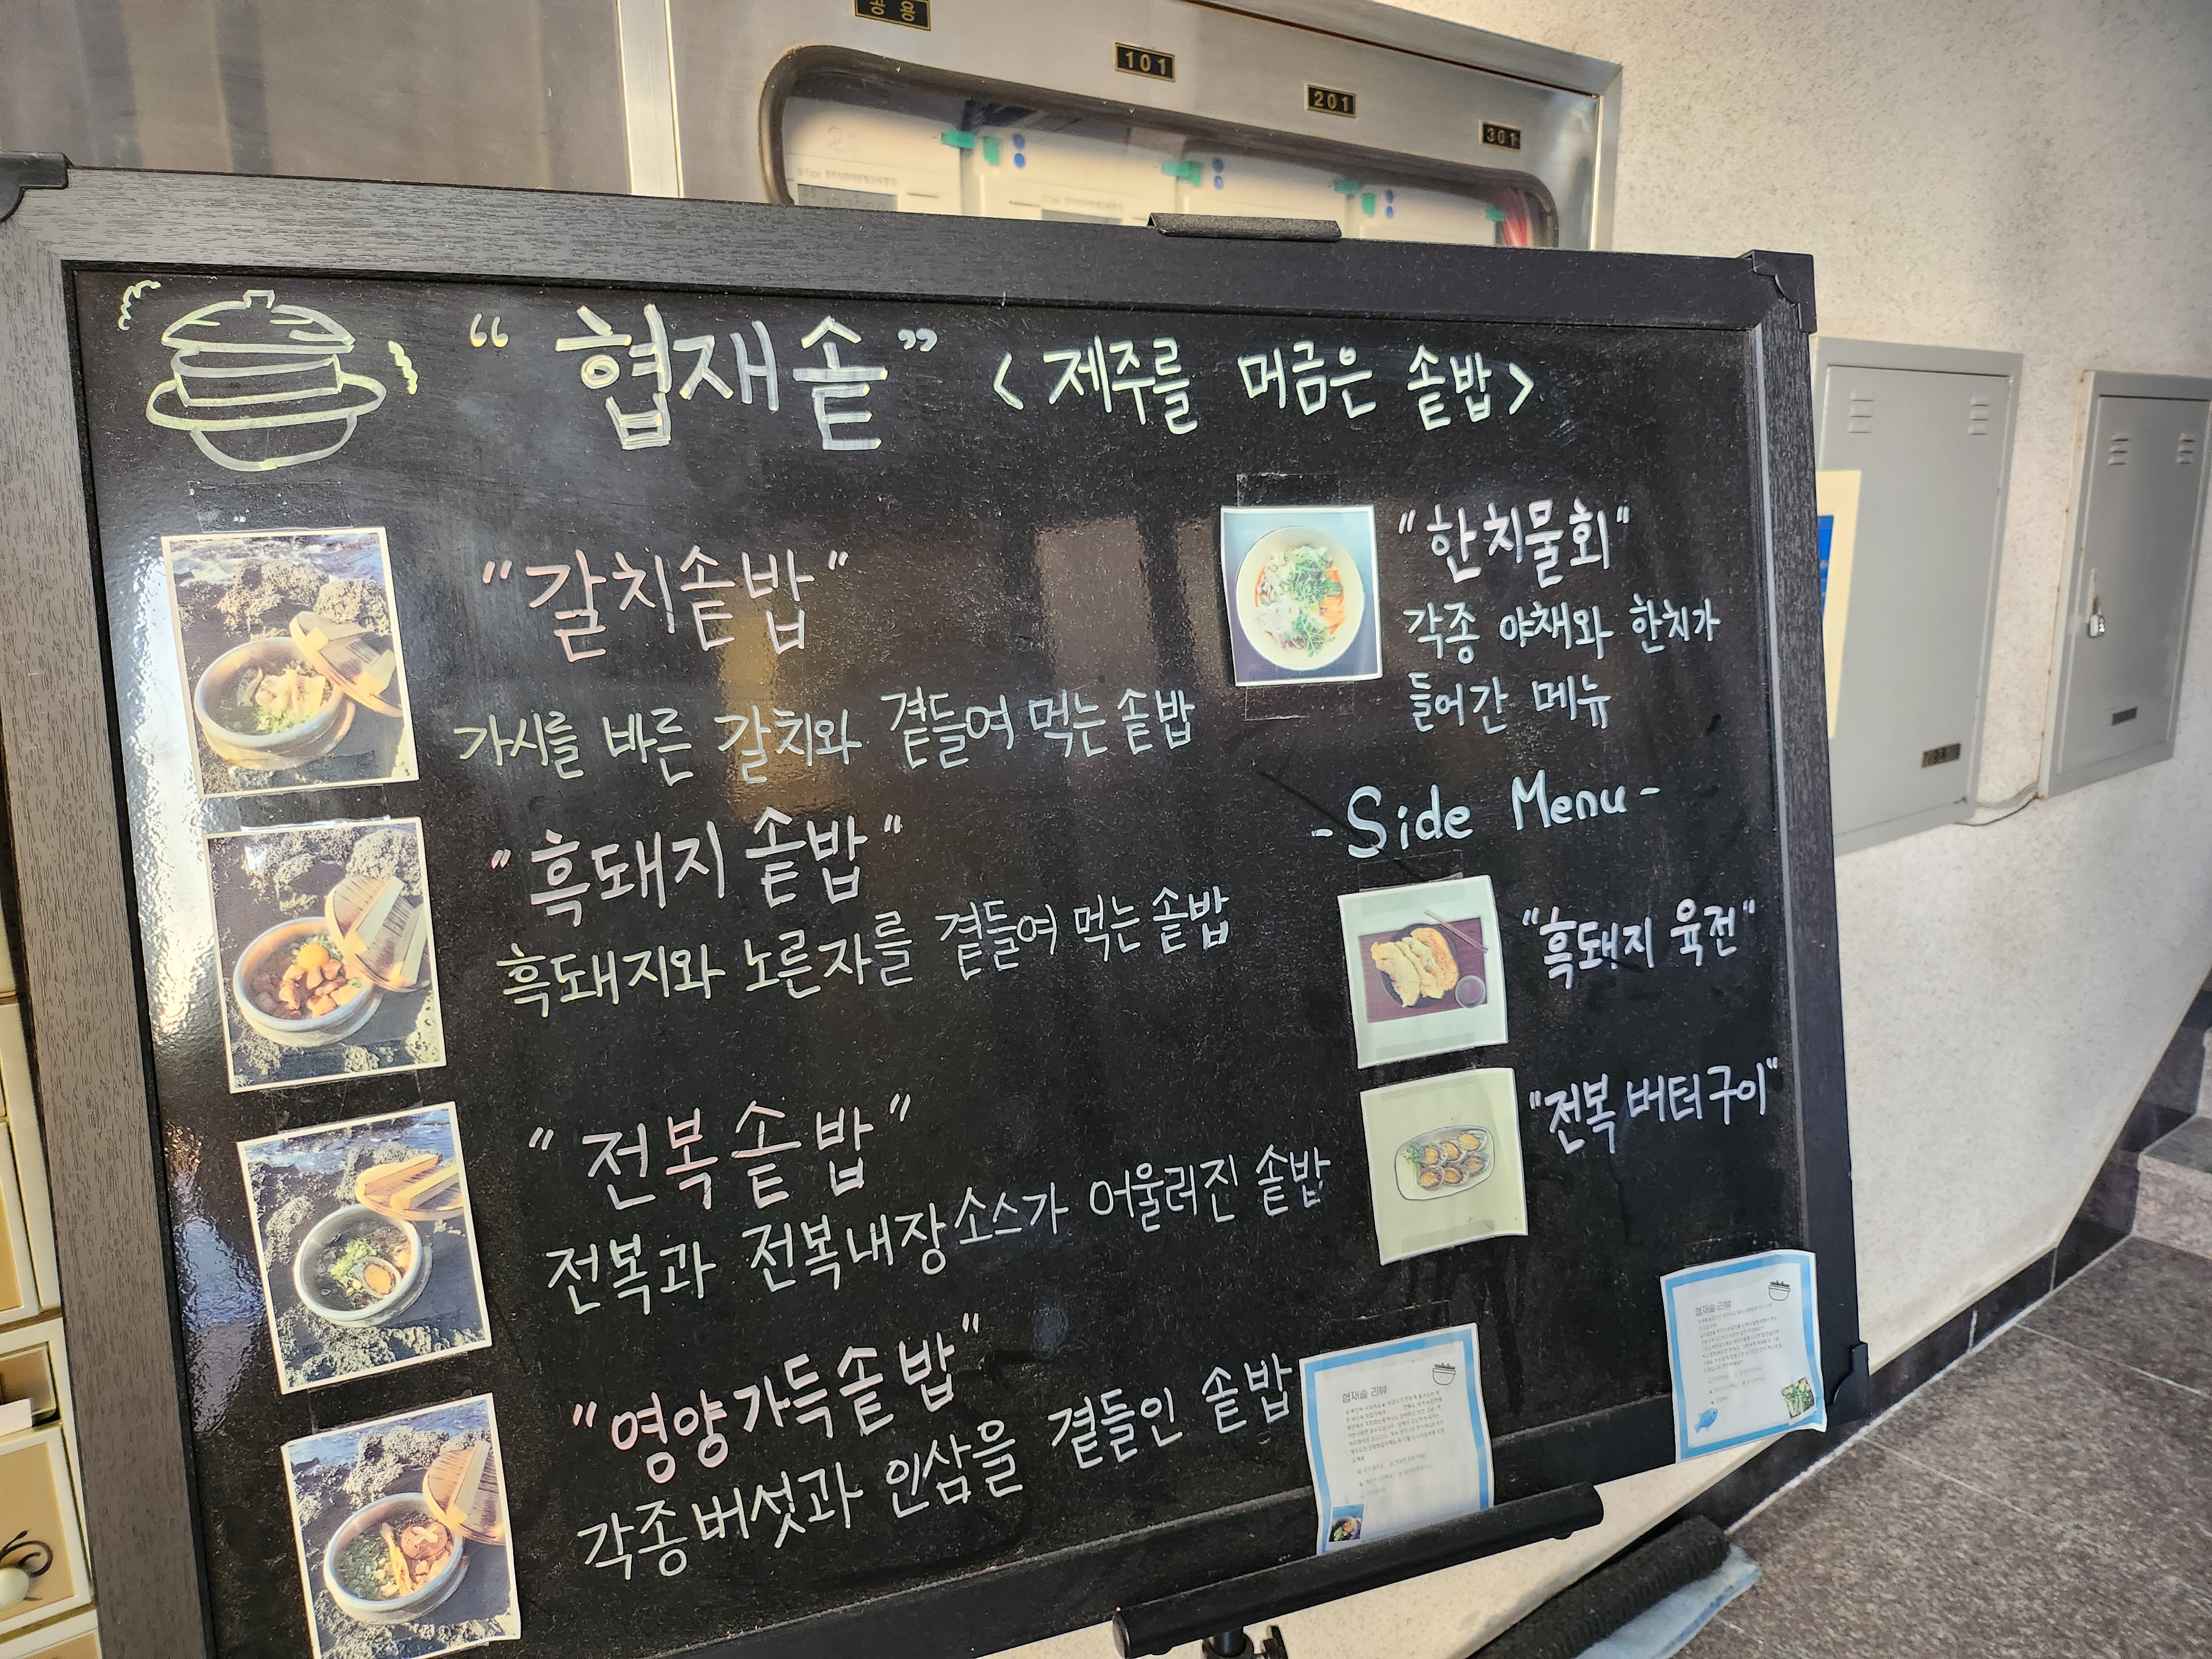 공용
101
201
301
“협재솥” <제주를 머금은 솥밥>
"갈치솥밥"
가시를 바른 갈치와 곁들여 먹는 솥밥
"흑돼지 솥밥"
흑돼지와 노른자를 곁들여 먹는 솥밥
"전복솥밥"
전복과 전복내장소스가 어울러진 솥밥
"영양가득솥밥"
각종버섯과 인삼을 곁들인 솥밥
"한치물회"
각종 야채와 한치가
들어간 메뉴
-Side Menu-
"흑돼지 육전"
"전복 버터구이"
협재솥 리뷰
협재솥 리뷰